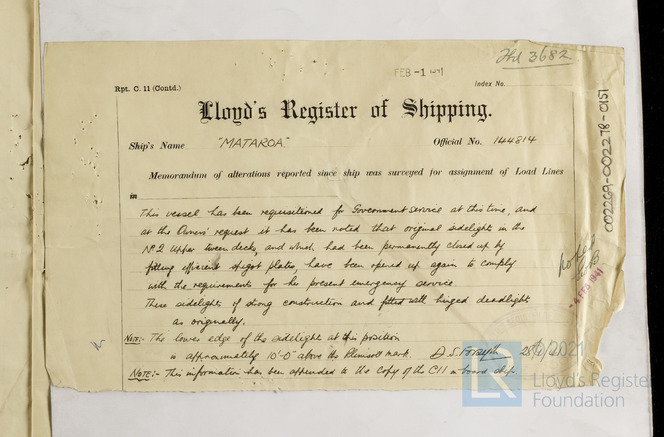 Thd 3682
FEB -1
Rpt. C. 11 (Contd.)
Index No.
Lloyd's Register of Shipping.
Ship's Name "MATAROA" Official No. 144814
Memorandum of alterations reported since ship was surveyed for assignment of Load Lines
in
This vessel has been requisitioned for Government service at this time, and
at the Owners' request it has been noted that original sidelight in the
No 2 Upper tween decks, and which had been permanently closed up by
fitting efficient spigot plates, have been opened up again to comply
with the requirements for her present emergency service
These sidelights of strong construction and fitted with hinged deadlight
as originally.
NOTE:- The lower edge of the sidelight at this position
is approximately 10'-0" above the Plimsoll mark. D. S. Forsyth 28/1/41
NOTE:- This information has been appended to the Copy of the C11 on board ship.
002269-002278-0151
Noted
4 FEB 1941
©2021
LR
Lloyd's Register
Foundation